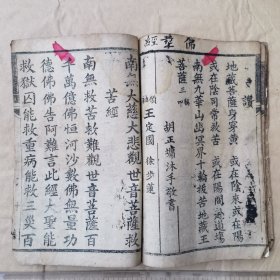 佛華經
讚
地藏菩薩身穿黃 或在陰來或在陽
或在陰司常救苦 或在陽間論道場
南無九華山幽冥界十輪拔苦地藏王
菩薩 三叩
胡正墉沐手敬書
王定國 徐步蓮
南無大慈大悲觀世音菩薩救
苦經
南無救苦救難觀世音菩薩
千萬億佛恒河沙數佛無量功
德佛佛告阿難言此經大聖能
救獄囚能救重病能救三災百